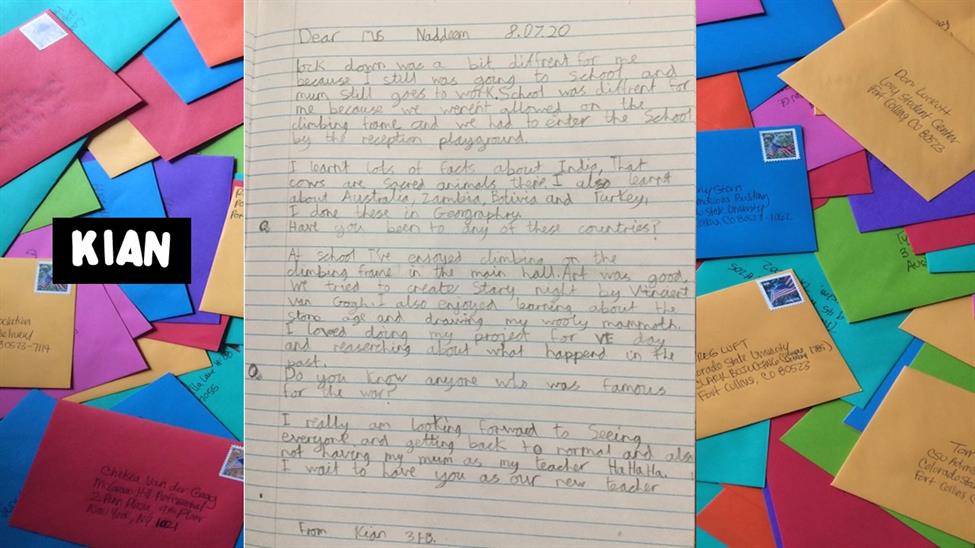 KIAN
Dear Ms Naddeem 8.07.20
lock down was a bit diffrent for me
because I still was going to school and
mum still goes to work. School was diffrent for
me because we weren't allowed on the
climbing frame and we had to enter the school
by the reception playground.
I learnt lots of facts about India, That
cows are sacred animals there. I also learnt
about Australia, Zambia, Bolivia and Turkey,
I done these in Geography.
Q Have you been to any of these countries?
At school I've enjoyed climbing on the
climbing frame in the main hall. Art was good,
we tried to create Stary night by Vincent
van Gogh. I also enjoyed learning about the
stone age and drawing my wooly mammoth.
I loved doing my project for VE day
and reaserching about what happend in the
past.
Q. Do you know anyone who was famous
for the war?
I really am looking forward to seeing
everyone and getting back to normal and also
not having my mum as my teacher HaHaHa.
I wait to have you as our new teacher
From Kian 3FB.
Don Luckett
Lory Student Center
Fort Collins CO 80523
Stan
Building
State University
80523-1062
80523-7114
Chelsea Van der Gaag
McGraw Hill Professional
2 Penn Plaza 9th Floor
New York, NY 10121
GREG LUFT
Colorado State University
Fort Collins, CO 80523
Tom
CSU
Colorado State
Fort Collins,